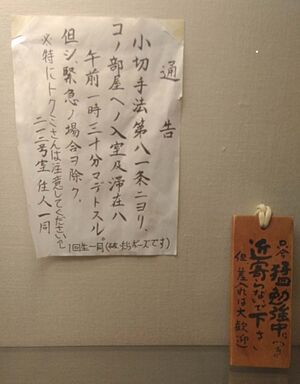 通告
小切手法第八一条ニヨリ、
コノ部屋ヘノ入室及滞在ハ
午前一時三十分マデトスル。
但シ、緊急ノ場合ヲ除ク。
※特にトクミさんは注意してください。
二一二号室住人一同
1回生一同(は、ポーズです)
只今猛勉強中につき
近寄らないで下さい
但差入れは大歓迎